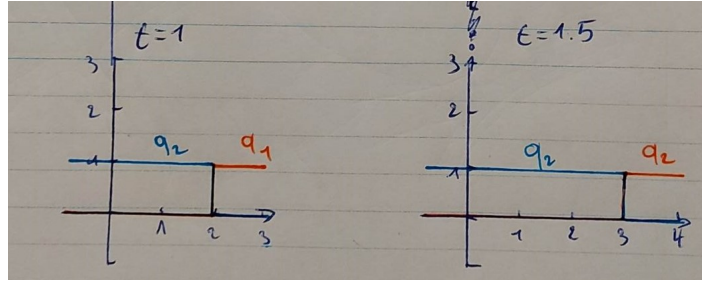 t=1
3
2
q2 q1
1
1 2 3
t=1.5
3
2
q2 q2
1
1 2 3 4